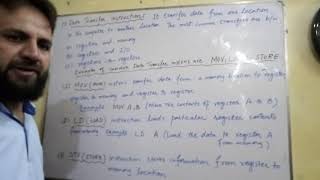 1) Data Transfer instructions: It transfer data from one location
in the computer to another location. The most common transfers are b/w
a) registers and memory
b) registers and I/O
c) registers & registers
Example of common Data Transfer instructions are MOV, LD, STORE
(1) MOV (Move) instructions transfer data from a memory to register
register to memory and register to register.
Example MOV A, B (Move the contents of register A & B)
(2) LD (LOAD) instruction loads particular register contents
from memory Example LD A (Load the data to register A
from memory)
(3) STO (STORE) instruction stores information from register to
memory location